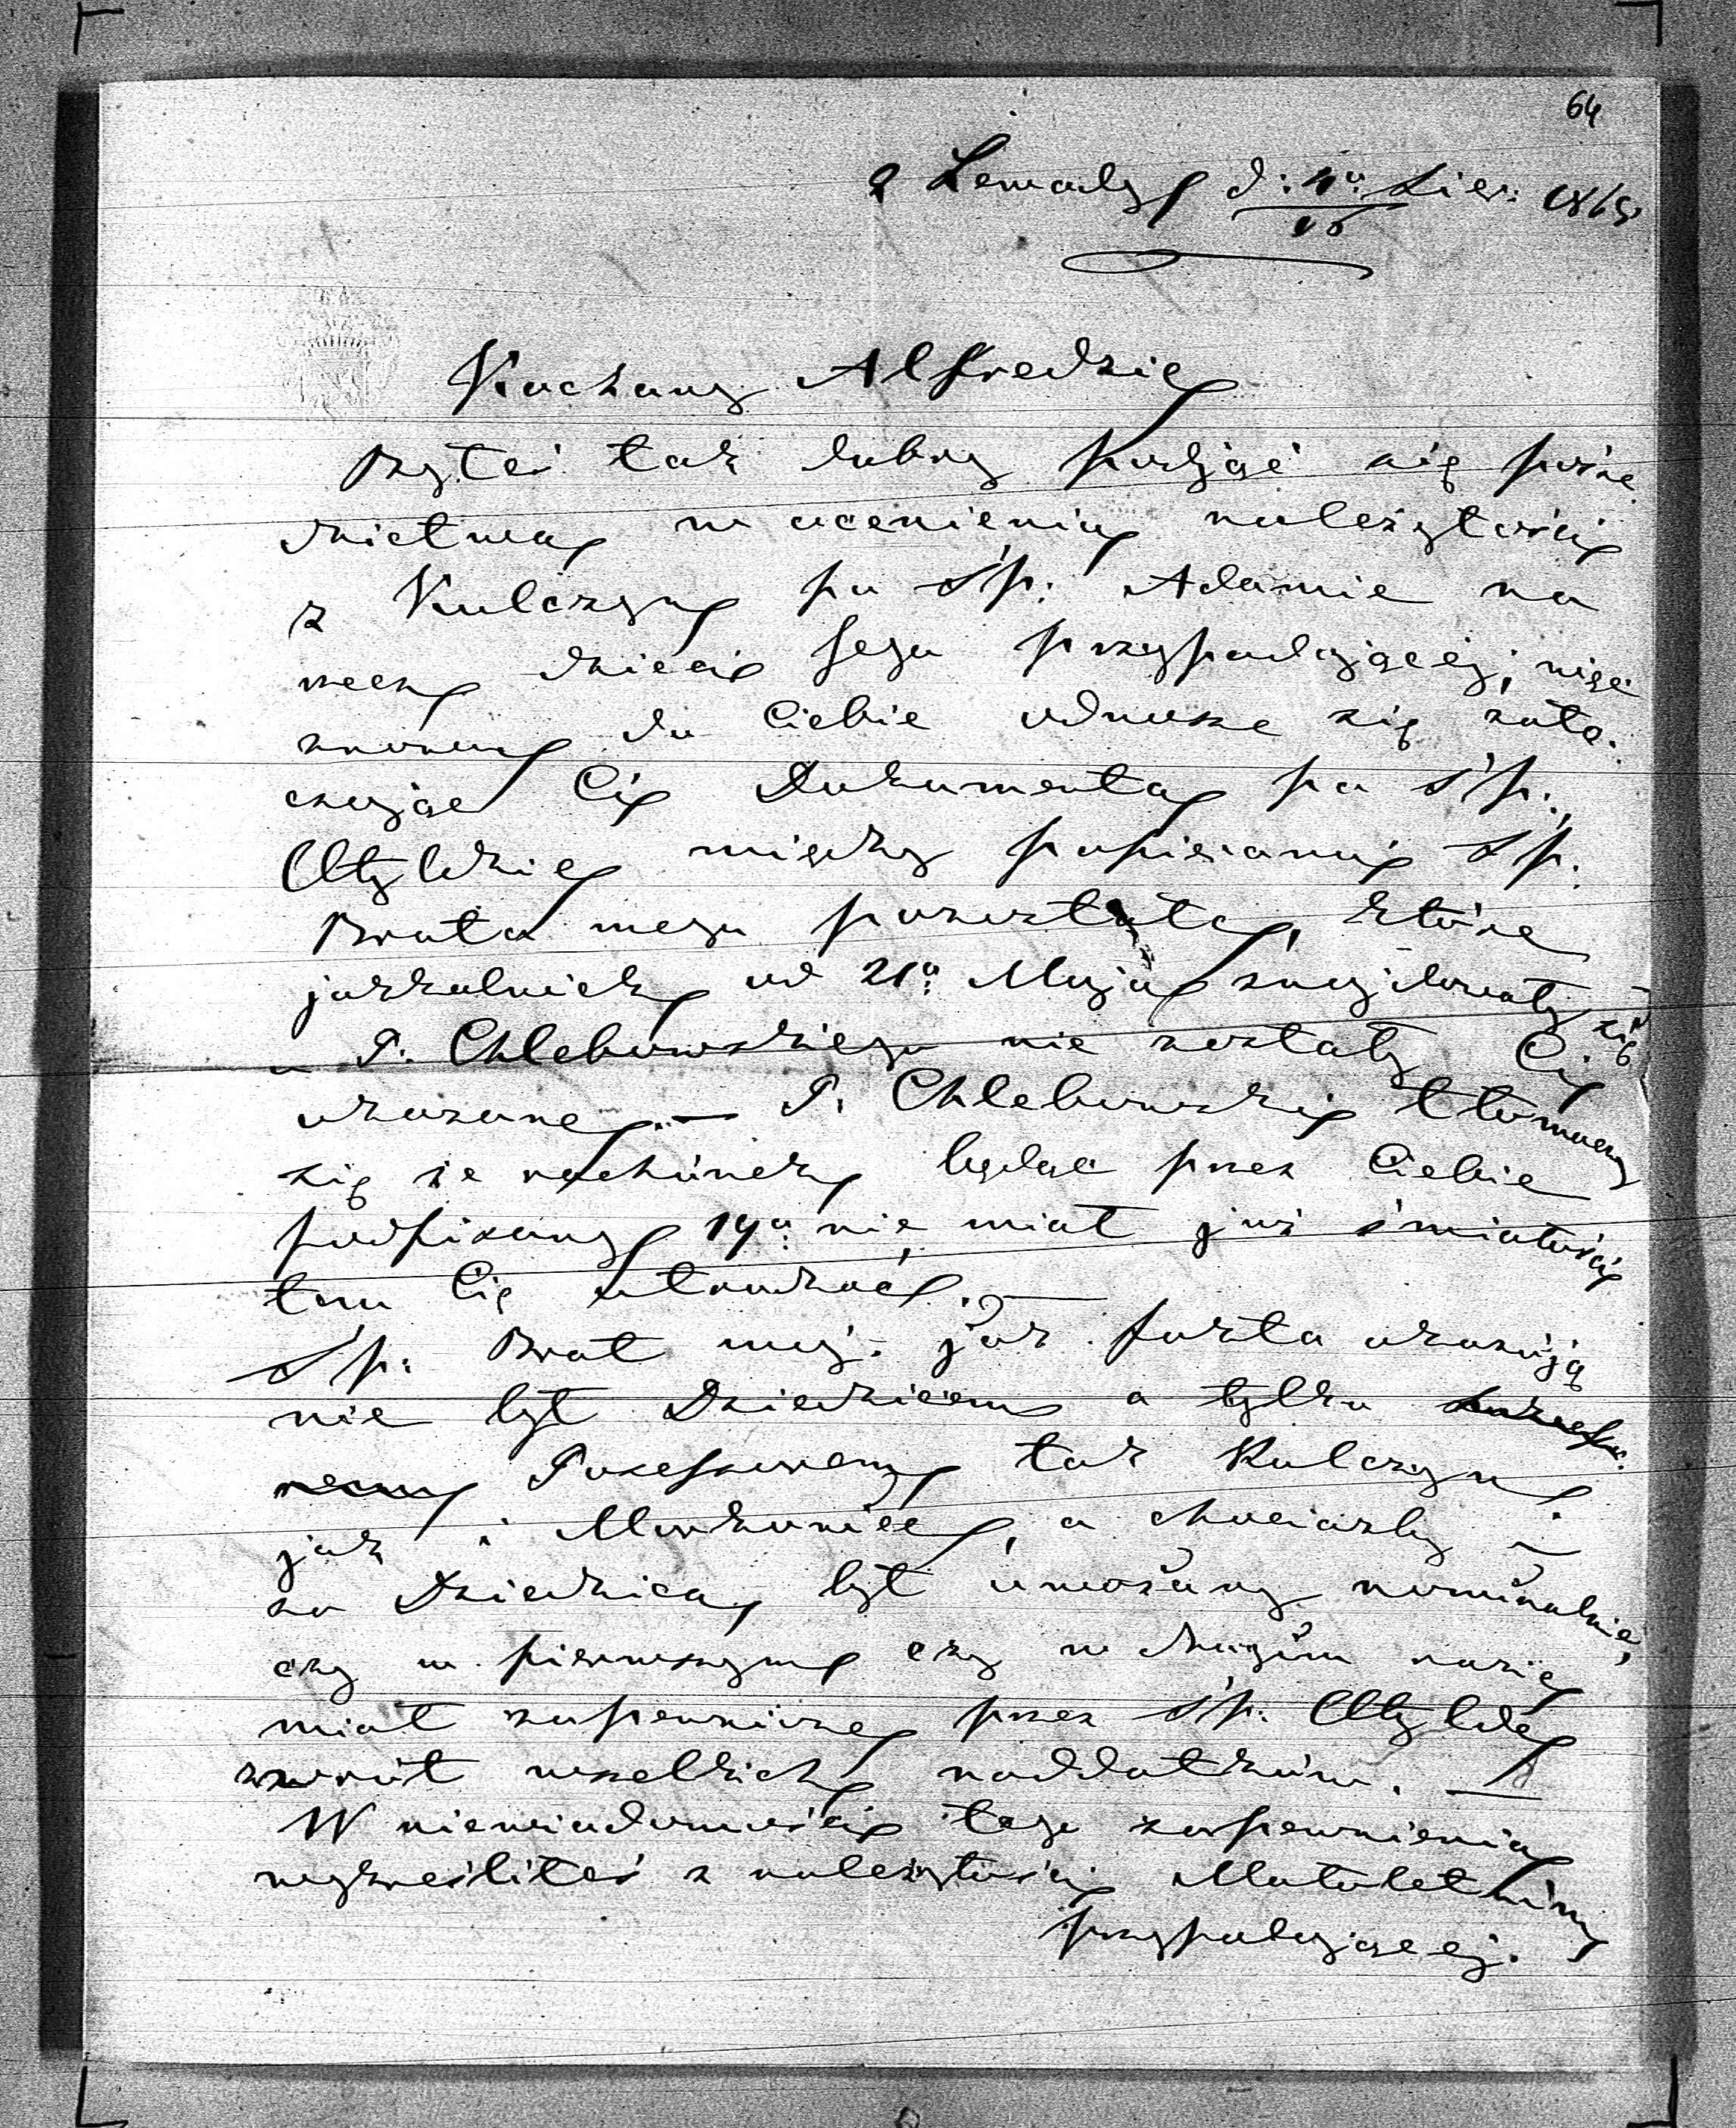 64
z Lemady d: 4º/16 Sier: 1865
Kochany Alfredzie
Byłeś tak dobry podjąć się pośre-
dnictwa w ocenieniu należytości
z Kulczyn po Śp: Adamie na
rzecz dzieci Jego przypadającej; więc
znowu do Ciebie odnoszę się załą-
czając Ci Dokumenta po Śp:
Otyldzie między papierami Śp:
Brata mego pozostałe, które
jakkolwiek od 21º Maja znajdowały się
u P. Chlebowskiego nie zostały Ci
okazane. — P. Chlebowski tłomaczy
się że rachunek będąc przez Ciebie
podpisany 19º nie miał już śmiałości
tem Cię utrudzać. —
Śp: Brat mój jak fakta okazują
nie był Dziedzicem a tylko
Posessorem tak Kulczyn
jak i a chociażby i
za Dziedzica był uważany nominalnie,
czy w pierwszym czy w drugim razie
miał zapewnione przez Śp: Otyldę
zwrót wszelkich naddatków. —
W niewiadomości tego zapewnienia
wykreśliłeś z należytości Małoletnim
przypadającej.